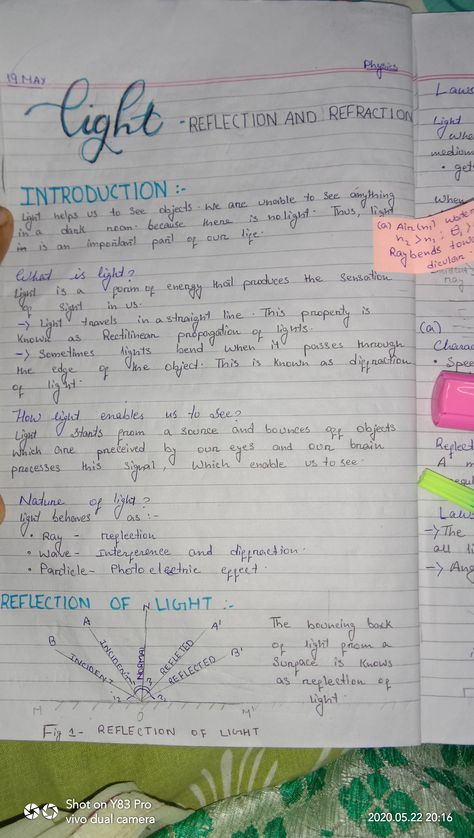 19 MAY
Physics
Light - REFLECTION AND REFRACTION
INTRODUCTION :-
Light helps us to see objects. We are unable to see anything
in a dark room because there is no light. Thus, light
is an important part of our life.
What is light?
Light is a form of energy that produces the sensation
of sight in us.
→ Light travels in a straight line. This property is
known as Rectilinear propagation of lights.
→ Sometimes lights bend when it passes through
the edge of the object. This is known as diffraction
of light.
How light enables us to see?
Light starts from a source and bounces off objects
which are preceived by our eyes and our brain
processes this signal, which enable us to see.
Nature of light?
light behaves as :-
• Ray - reflection
• Wave - Interference and diffraction.
• Particle - Photoelectric effect.
REFLECTION OF LIGHT :-
N
A
A'
B
B'
INCIDENT
INCIDENT
NORMAL
REFLECTED
M
O
M'
Fig 1 - REFLECTION OF LIGHT
The bouncing back
of light from a
surface is knows
as reflection of
light.
Laws
Light
Whe
medium
• get
When
(a) Air(n1) wate
n2 > n1 ; θ1 >
Ray bends tow
dicular.
ray
(a)
Charac
• Spee
Reflect
A m
Laws
→ The
all li
→ Ang
Shot on Y83 Pro
vivo dual camera
2020.05.22 20:16